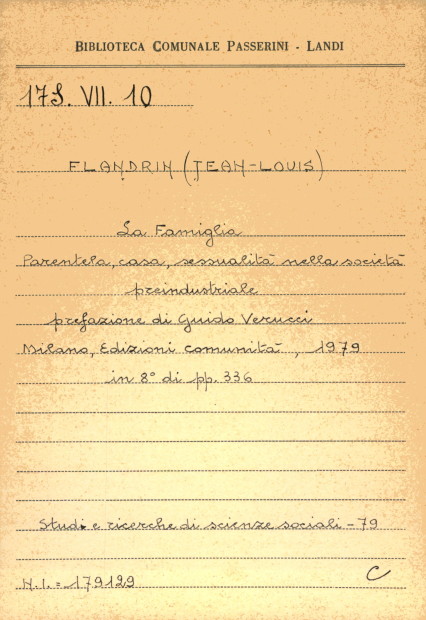 BIBLIOTECA COMUNALE PASSERINI - LANDI
17S. VII. 10
FLANDRIN (JEAN-LOUIS)
La Famiglia
Parentela, casa, sessualità nella società
preindustriale
prefazione di Guido Verucci
Milano, Edizioni comunità, 1979
in 8° di pp. 336
Studi e ricerche di scienze sociali - 79
N.I. = 179129
C